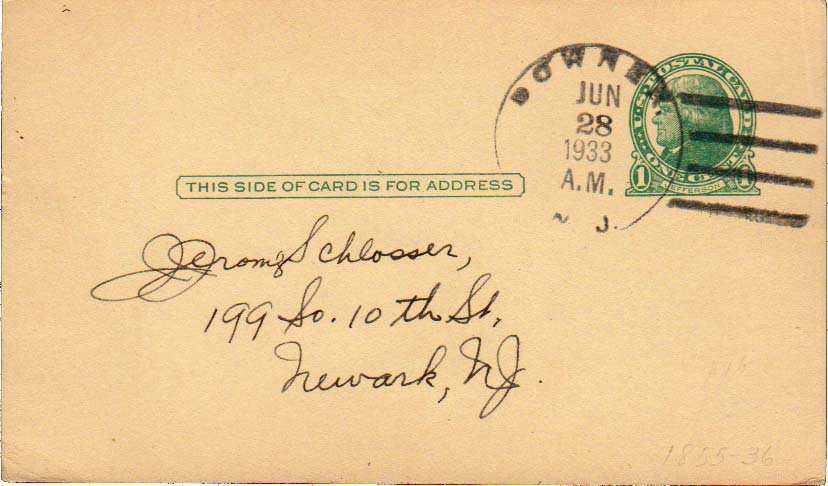 DOWNER
JUN
28
1933
A.M.
N. J.
U.S. POSTAL CARD
ONE CENT
1 JEFFERSON 1
THIS SIDE OF CARD IS FOR ADDRESS
Jerome Schlosser,
199 So. 10th St,
Newark, NJ.
1855-36